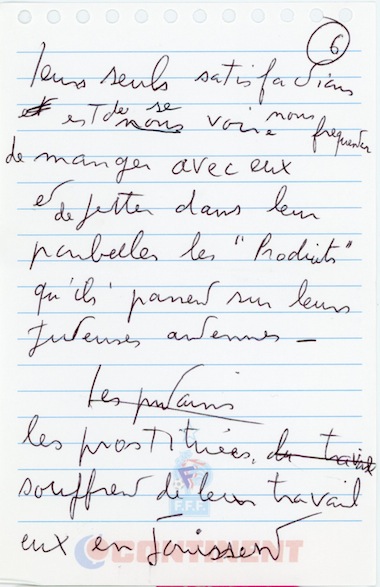 6
leurs seuls satisfactions
est de se nous voir nous fréquenter
de manger avec eux
et de jetter dans leur
poubelles les "Produits"
qu'ils passent sur leurs
antennes –
Les putains
les prostituées, du travail
souffrent de leur travail
eux en jouissent
F.F.F.
CONTINENT